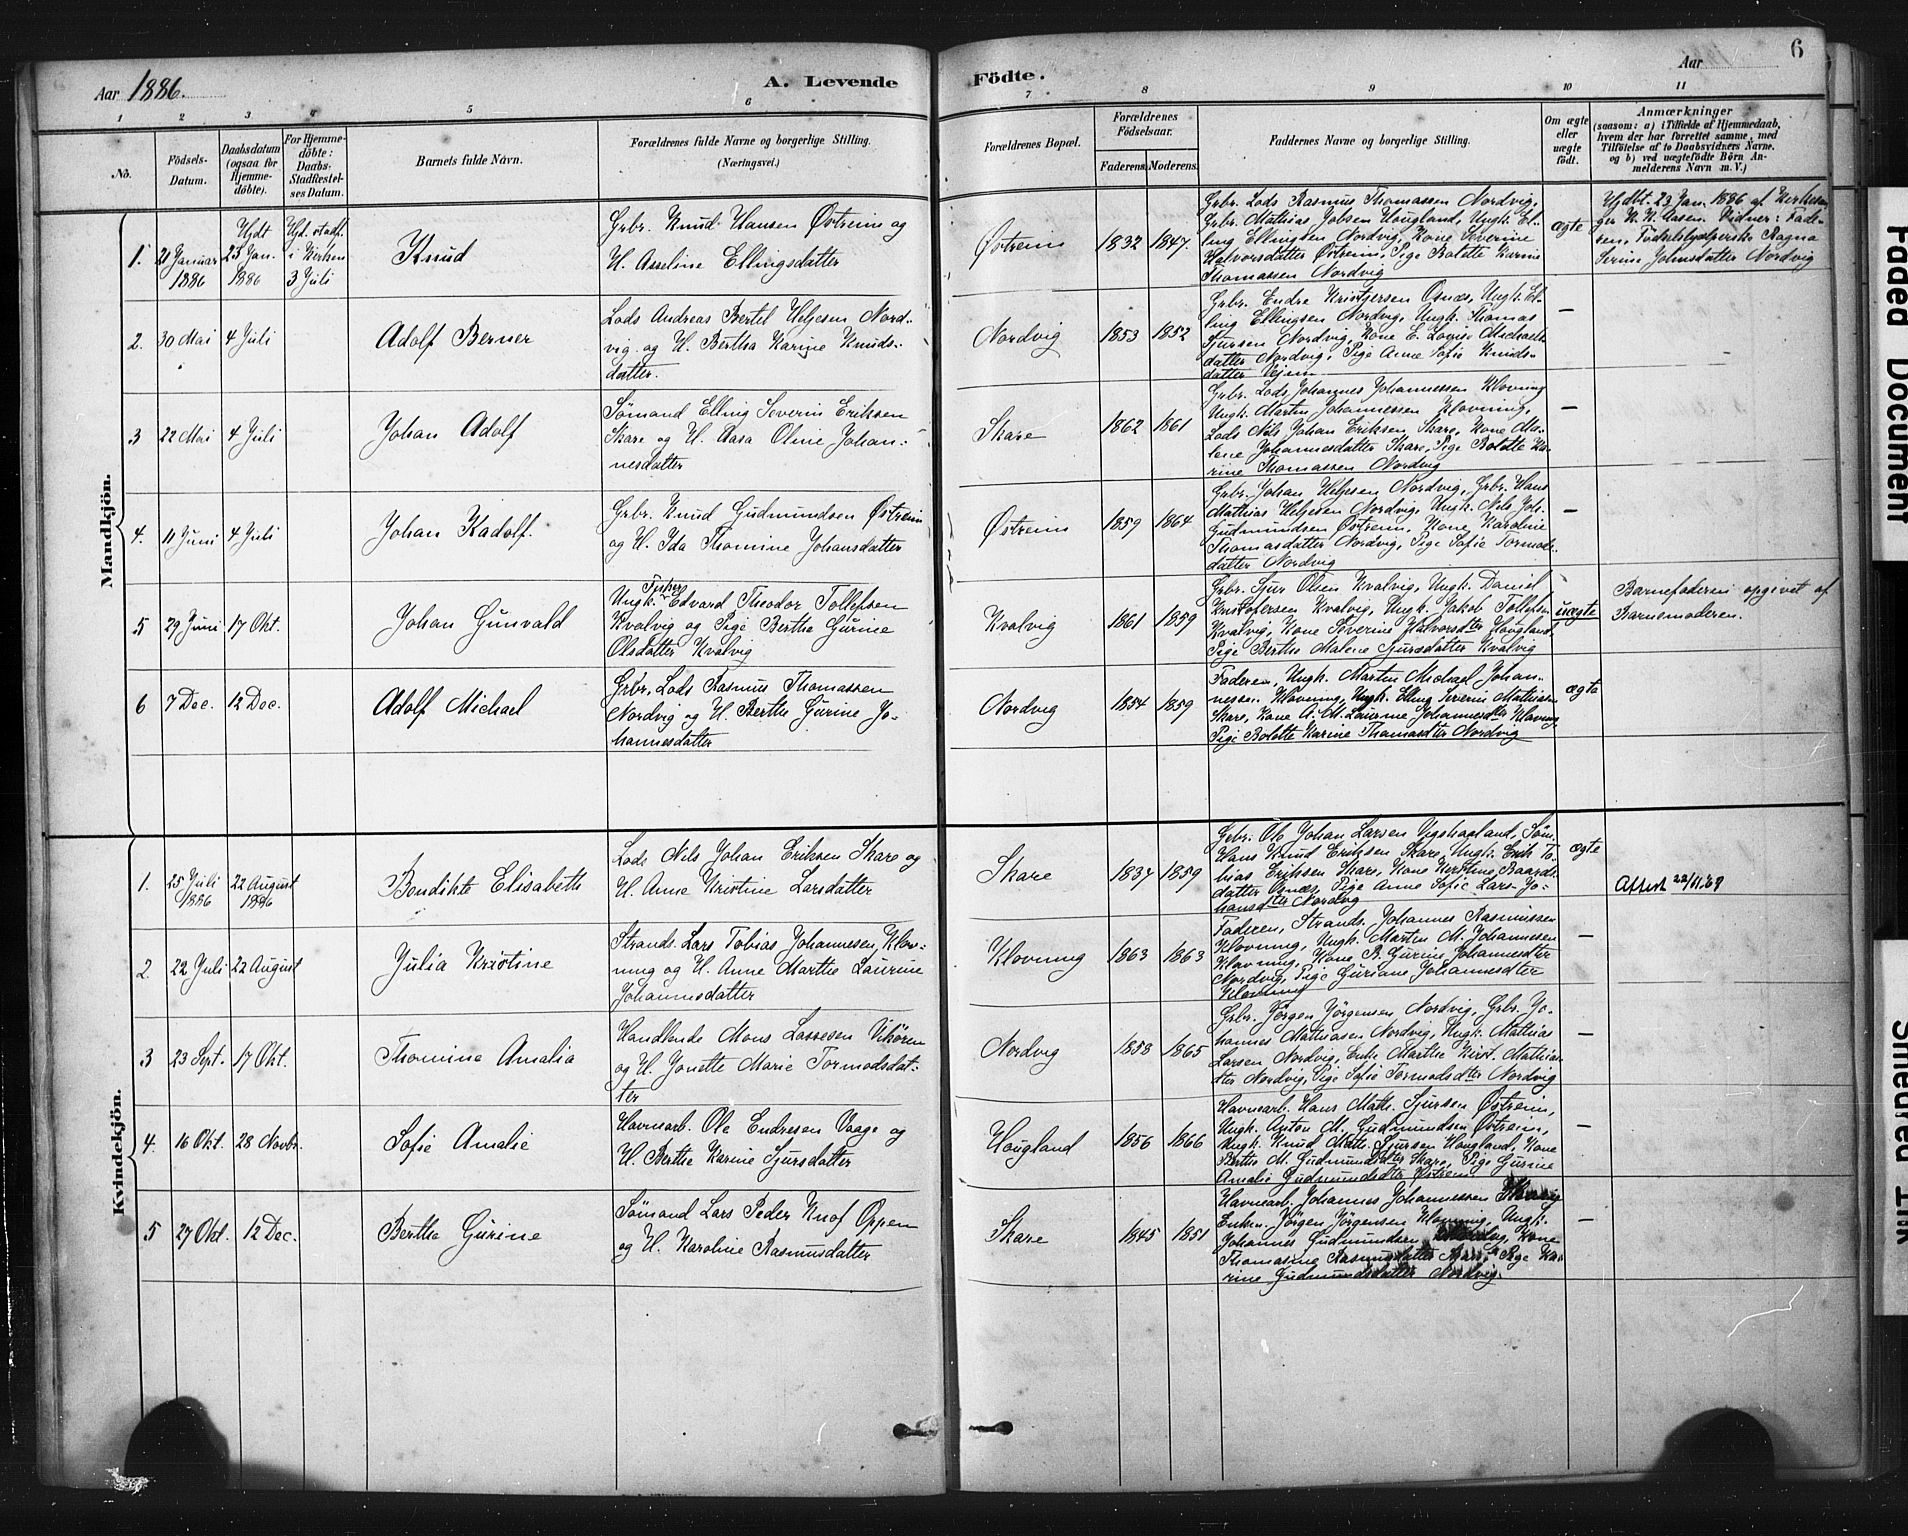 Aar 1886.
A. Levende
Födte.
Aar
6
1 2 3 4 5 6 7 8 9 10 11
No.
Födsels-Datum.
Daabsdatum (ogsaa for Hjemme-döbte).
For Hjemme-döbte: Daabs-Stadfestel-ses Datum.
Barnets fulde Navn.
Forældrenes fulde Navne og borgerlige Stilling.
(Næringsvei.)
Forældrenes Bopæl.
Forældrenes Födselsaar.
Faderens. Moderens.
Faddernes Navne og borgerlige Stilling.
Om ægte eller uægte födt.
Anmærkninger
(saasom: a) i Tilfælde af Hjemmedaab,
hvem der har forrettet samme, med
Tilföielse af to Daabsvidners Navne,
og b) ved uægtefödte Börn An-
melderens Navn m. V.)
Mandkjön.
1. 21 Januar 1886
Hjdt 23 Jan. 1886
Hjd. stadf. i Kirken 3 Juli
Knud
Grbr. Knud Hansen Östreim og
H. Asseline Ellingsdatter
Östreim 1832 1847.
Grbr. Lods Rasmus Thomassen Nordvig,
Grbr. Mathias Jobsen Hougland, Ungk. El-
ling Ellingsen Nordvig, Kone Severine
Halvorsdatter Östreim, Pige Bolette Karine
Thomassen Nordvig
ægte
Hjdbt. 23 Jan. 1886 af Kirkesan-
ger K. K. Aasen. Vidner: Fade-
ren, Födselshjælperske Ragna
Serine Johnsdatter Nordvig
2. 30 Mai 4 Juli
Adolf Berner
Lods Andreas Bertel Helgesen Nord-
vig og H. Bertha Karine Knuds-
datter.
Nordvig 1853 1852
Grbr. Endre Kristjersen Osnæs, Ungk. El-
ling Ellingsen Nordvig, Ungk. Thomas
Sjursen Nordvig, Kone E. Lovise Michaels-
datter Nordvig, Pige Anne Sofie Knuds-
datter
—
3 22 Mai 4 Juli
Johan Adolf
Sömand Elling Severin Eriksen
Skare og H. Aasa Oline Johan-
nesdatter
Skare 1862 1861
Grbr. Lods Johannes Johannessen Klovning
Ungk. Martin Johannessen Klovning,
Lods Nils Johan Eriksen Skare, Kone Ma-
lene Johannesdatter Skare, Pige Bolette Ka-
rine Thomassen Nordvig
—
4. 11 Juni 4 Juli
Johan Kadolf.
Grbr. Knud Gudmundsen Östreim
og H. Ida Thomine Johansdatter
Östreim 1859 1864
Grbr. Johan Helgesen Nordvig, Grbr. Hans
Mathias Helgesen Nordvig, Ungk. Nils Joh.
Gudmundsen Östreim, Kone Karoline
Thomasdatter Nordvig, Pige Sofie Tormods-
datter Nordvig
—
5 29 Juni 17 Okt.
Johan Gunvald
Fisker
Ungk. Edvard Theodor Tollefsen
Kvalvig og Pige Berthe Gurine
Olsdatter Kvalvig
Kvalvig 1861 1859
Grbr. Sjur Olsen Kvalvig, Ungk. Daniel
Kristofersen Kvalvig, Ungk. Jakob Tollefsen
Kvalvig, Kone Severine Halvorsdter Hougland
Pige Berthe Malene Sjursdatter Kvalvig
uægte
Barnefaderen opgivet af
Barnemoderen.
6 7 Dec. 12 Dec.
Adolf Michael
Grbr. Lods Rasmus Thomassen
Nordvig og H. Berthe Gurine Jo-
hannesdatter
Nordvig 1854 1859
Faderen, Ungk. Martin Michael Johan-
nessen Klovning, Ungk. Elling Severin Mathiasen
Skare, Kone A. M. Laurine Johannesdter Klovning
Pige Bolette Karine Thomasdter Nordvig
ægte
Kvindekjön.
1. 25 Juli 1886
22 August 1886
Bendikte Elisabeth
Lods Nils Johan Eriksen Skare og
H. Anne Kristine Larsdatter
Skare 1834 1859
Grbr. Ole Johan Larsen Vigshagland, Söm.
Hans Knud Eriksen Skare, Ungk. Erik To-
bias Eriksen Skare, Kone Kirstine Baards-
datter Osnæs, Pige Anne Sofie Lars Jo-
hansdter Nordvig
ægte
Attest 22/11.69
2 22 Juli 22 August
Julia Kristine
Strands. Lars Tobias Johannesen, Klov-
ning og H. Anne Marthe Laurine
Johannesdatter
Klovning 1863 1863
Faderen, Strands. Johannes Rasmussen
Klovning, Ungk. Martin M. Johannesen
Klovning, Kone B. Gurine Johannesdter
Nordvig, Pige Guriane Johannesdter
Klovning
—
3 23 Sept. 17 Okt.
Thomine Amalia
Handlende Mons Lassesen Vikören
og H. Jonette Marie Tormodsdat-
ter
Nordvig 1858 1865
Grbr. Jörgen Jörgensen Nordvig, Grbr. Jo-
hannes Mathiasen Nordvig, Ungk. Mathias
Larsen Nordvig, Enke Marthe Kirst. Mathias-
dter Nordvig, Pige Sofie Tormodsdter Nordvig
—
4. 16 Okt. 28 Novbr.
Sofie Amalie
Havnearb. Ole Endresen Vaage og
H. Berthe Karine Sjursdatter
Hougland 1856 1866
Havnearb. Hans Math. Sjursen Östreim,
Ungk. Anton M. Gudmundsen Östreim,
Ungk. Knud Math. Sjursen Hougland, Kone
Berthe M. Gudmundsdatter Skare, Pige Gurine
Amalie Gudmundsdter Östreim
—
5 27 Okt. 12 Dec.
Berthe Gurine
Sömand Lars Peder Knof Oppen
og H. Karoline Rasmusdatter
Skare 1845 1851
Havnearb. Johannes Johannessen
Enkem. Jörgen Jörgensen Klovning, Ungk.
Johannes Gudmundsen Nordvig, Kone
Thomasine Rasmusdatter Skare, Pige Ka-
rine Gudmundsdatter Nordvig.
—
Faded Document
Smeared Ink